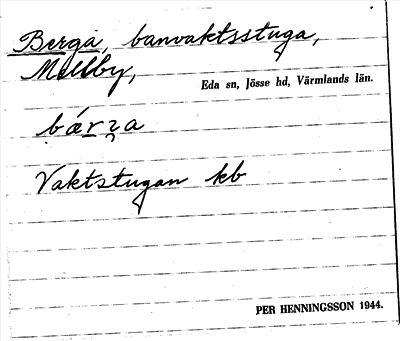 Berga, banvaktsstuga,
Mellby,
Eda sn, Jösse hd, Värmlands län.
bærʒa
Vaktstugan kb
PER HENNINGSSON 1944.